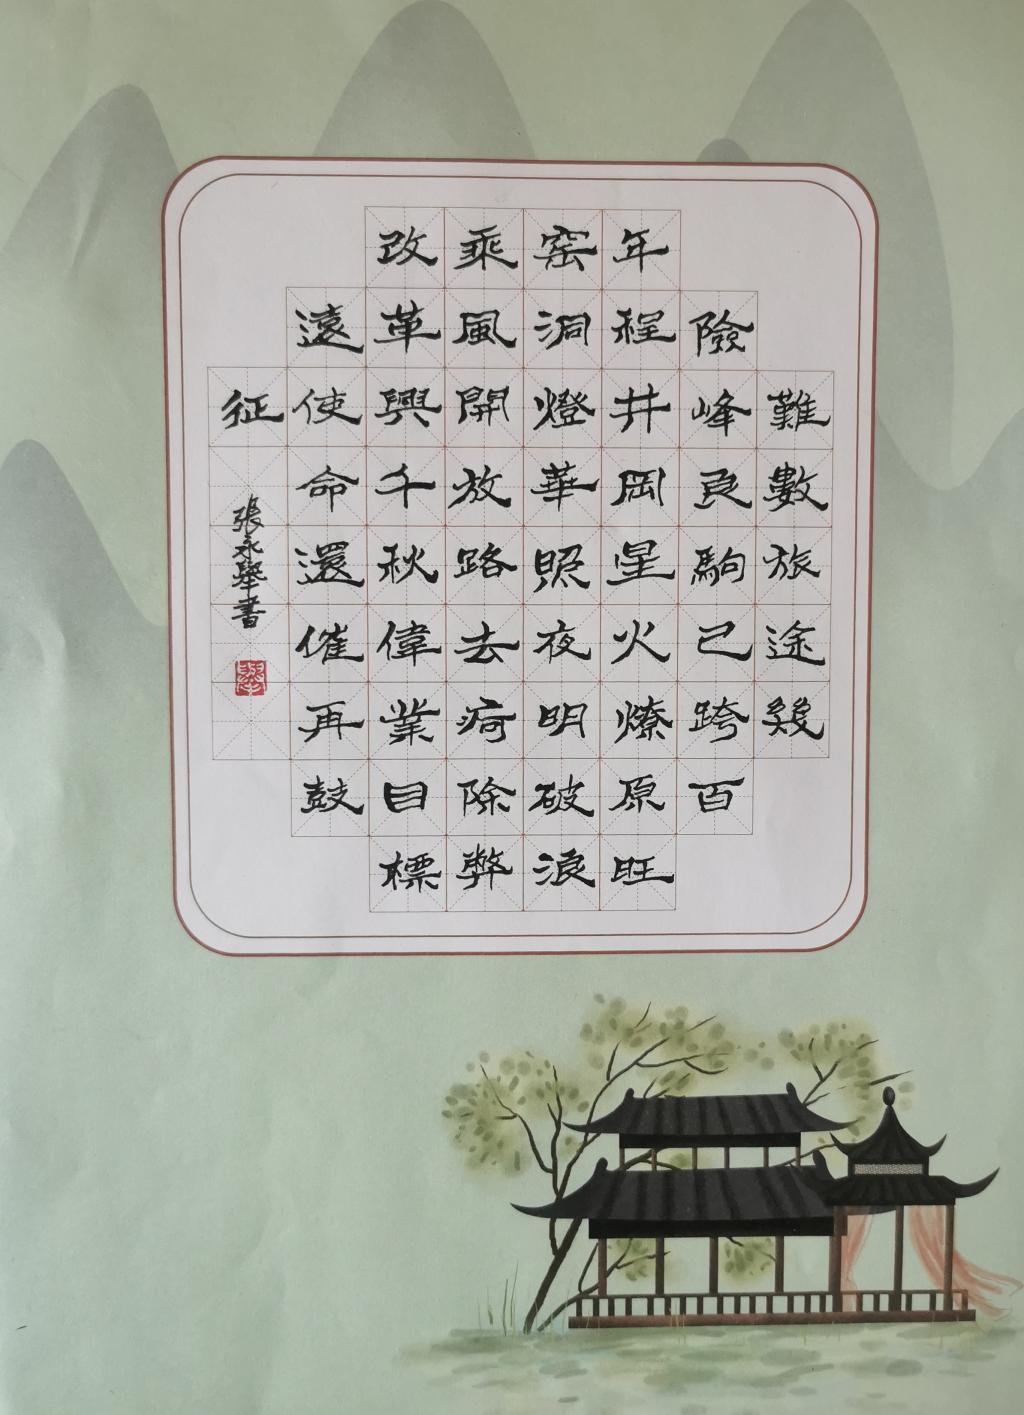 難數旅途幾
險峰良駒已跨百
年程井岡星火燎原旺
窑洞燈華照夜明破浪
乘風開放路去疴除弊
改革興千秋偉業目標
遠使命還催再鼓
征
張永舉書